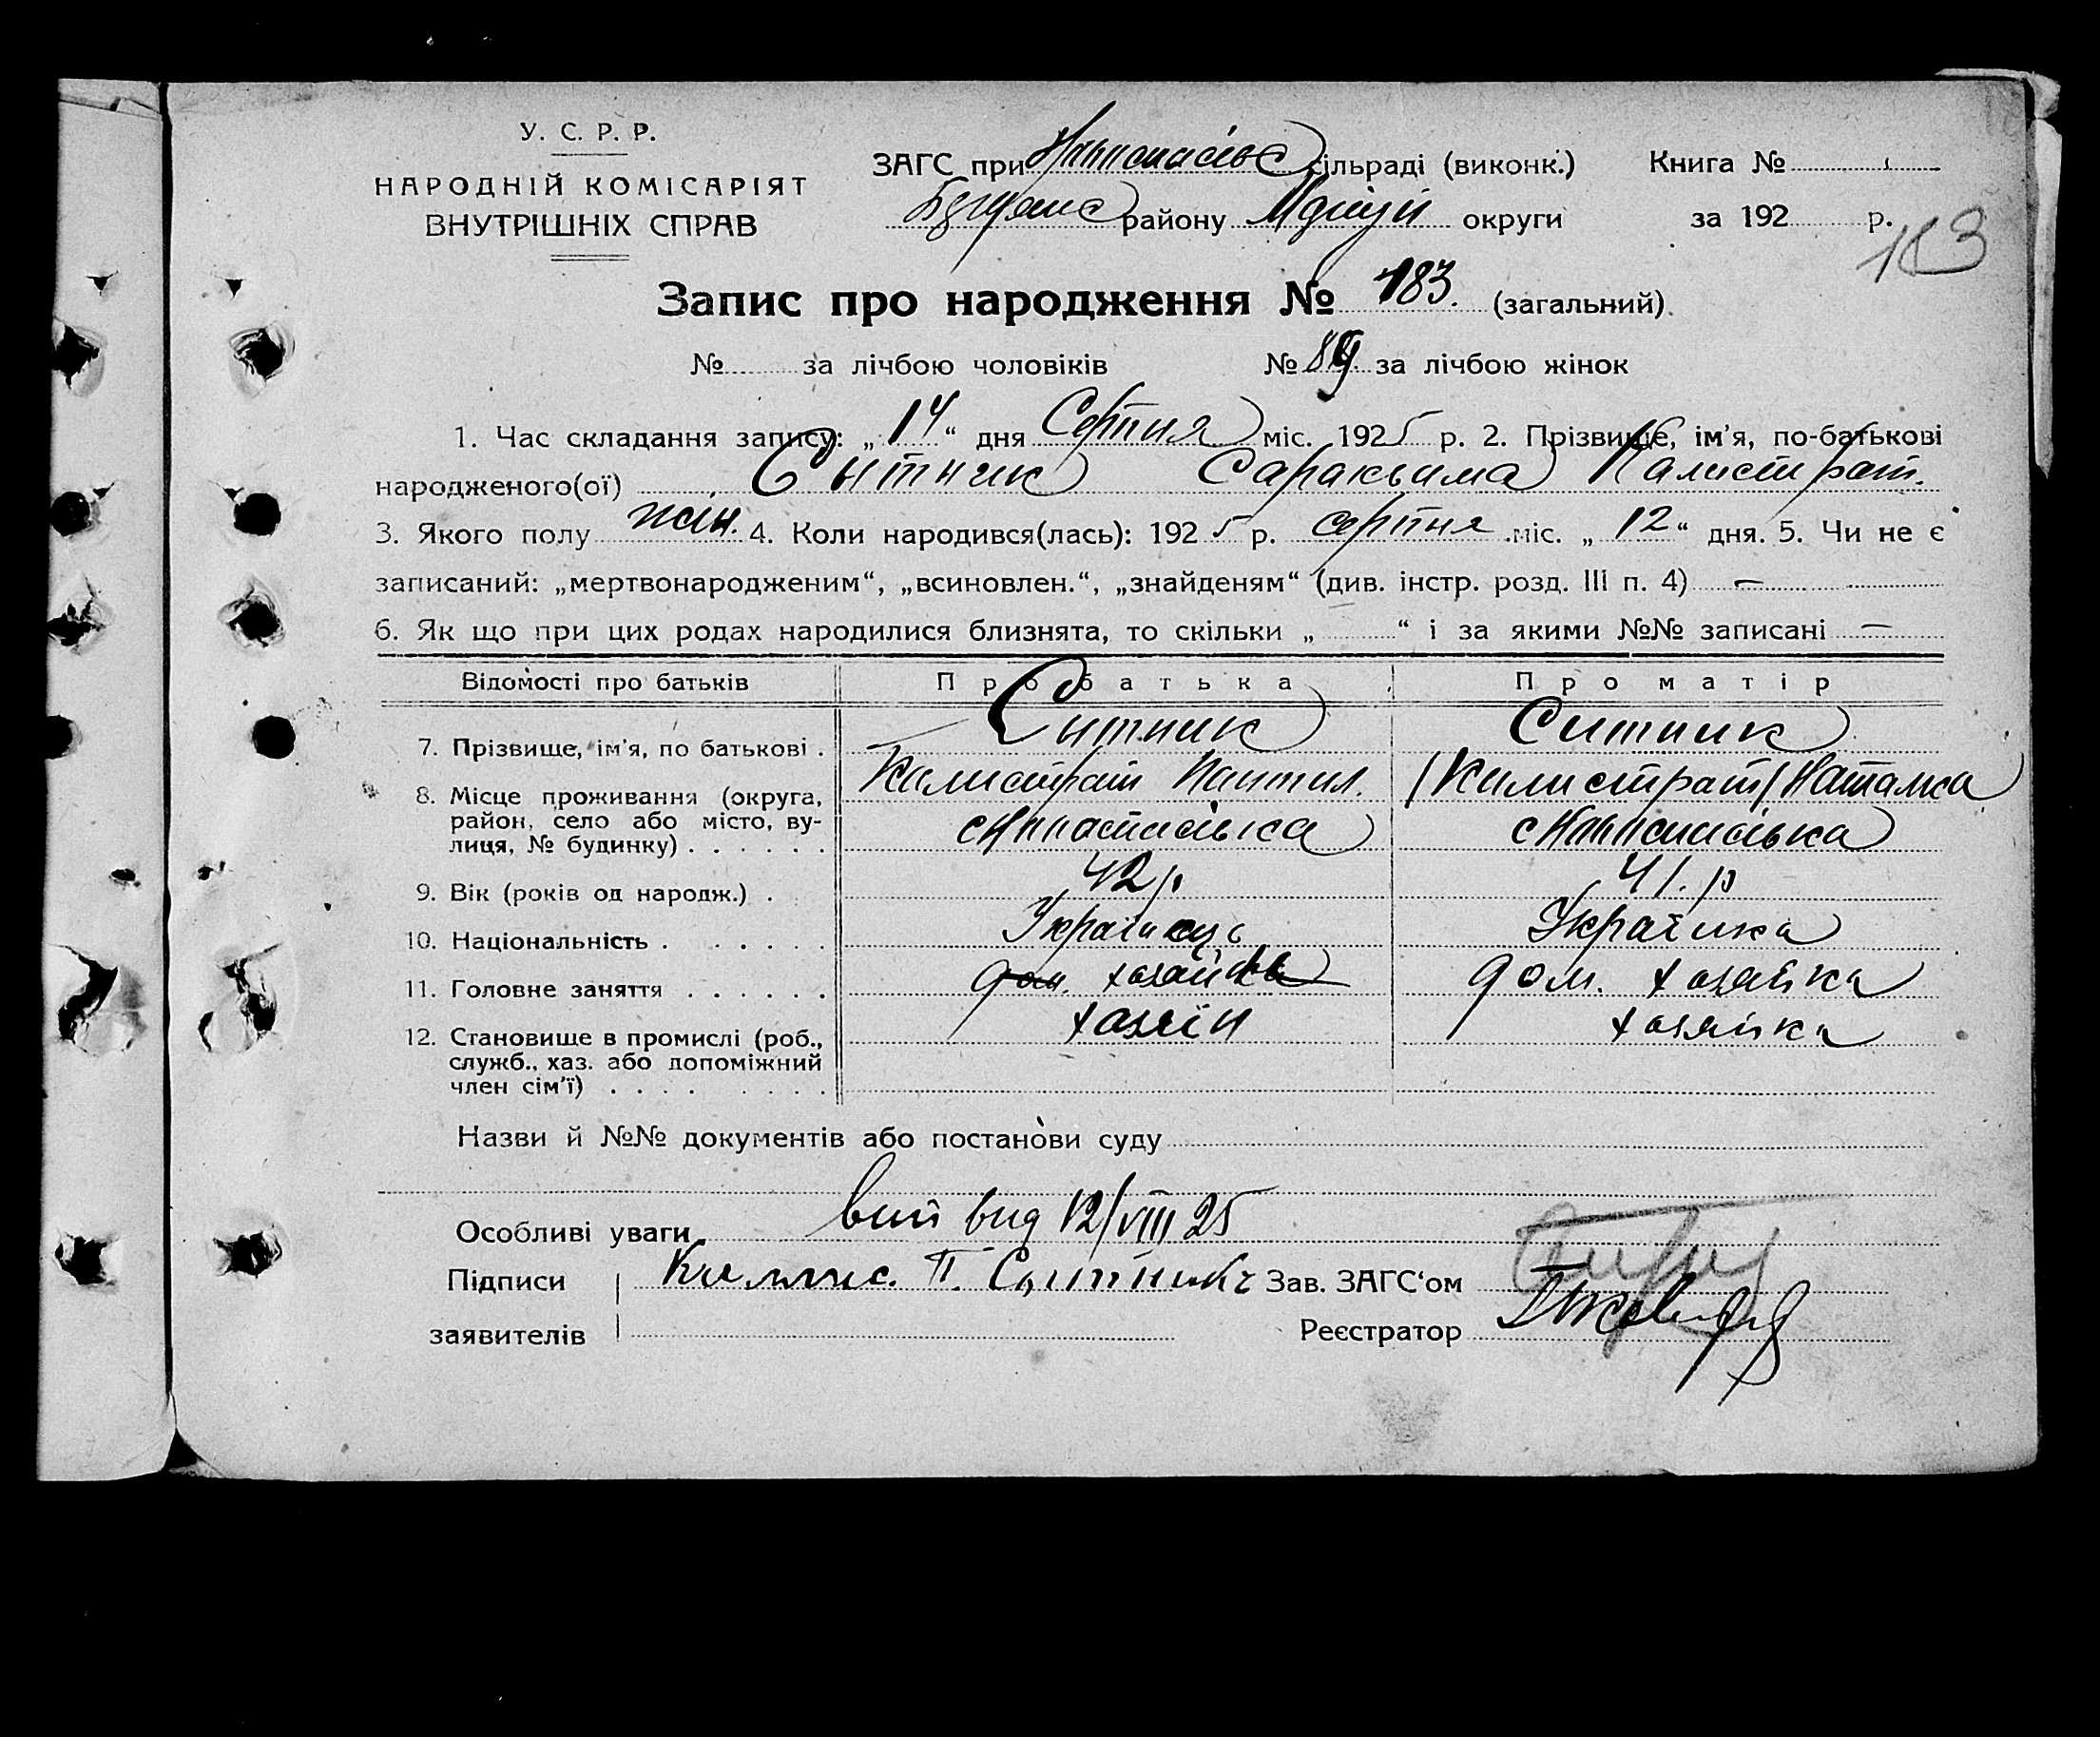 У. С. Р. Р.
НАРОДНІЙ КОМІСАРІЯТ
ВНУТРІШНІХ СПРАВ
ЗАГС при сільраді (виконк.) Книга №
району округи за 192 р.
183
Запис про народження № 183. (загальний).
№ за лічбою чоловіків № 89 за лічбою жінок
1. Час складання запису: „14“ дня Серпня міс. 1925 р. 2. Прізвище, ім'я, по-батькові
народженого(ої) Сытник Калистрат.
3. Якого полу жін. 4. Коли народився(лась): 1925 р. серпня міс. „12“ дня. 5. Чи не є
записаний: „мертвонародженим“, „всиновлен.“, „знайденям“ (див. інстр. розд. III п. 4) —
6. Як що при цих родах народилися близнята, то скільки „ “ і за якими №№ записані —
Відомості про батьків Про батька Про матір
7. Прізвище, ім'я, по батькові . Ситник Ситник
Калистрат Пантил. /Калистрат/ Наталка
8. Місце проживання (округа,
район, село або місто, ву-
лиця, № будинку) . . . . . .
9. Вік (років од народж.) . 42 р 41. р
10. Національність . . . . . . Українець Українка
11. Головне заняття . . . . . . дом. хозяйка дом. хозяйка
12. Становище в промислі (роб., хазяін хозяйка
служб., хаз. або допоміжний
член сім'ї) . . . . . . . .
Назви й №№ документів або постанови суду
Особливі уваги вип вид 12/VIII 25
Підписи Калис. П. Сытникъ Зав. ЗАГС'ом
заявителів Реєстратор